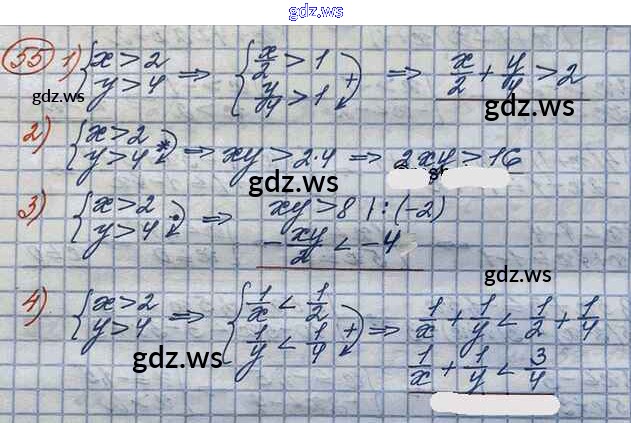 gdz.ws
55 1) {x>2 y>4 ⇒ {x/2 > 1 y/4 > 1 + ⇒ x/2 + y/4 > 2
gdz.ws gdz.ws
2) {x>2 y>4 * ⇒ xy>2·4 ⇒ 2xy>16
gdz.ws
3) {x>2 y>4 · ⇒ xy>8 | : (-2)
-xy/2 < -4
gdz.ws
4) {x>2 y>4 ⇒ {1/x < 1/2 1/y < 1/4 + ⇒ 1/x + 1/y < 1/2 + 1/4
gdz.ws
1/x + 1/y < 3/4